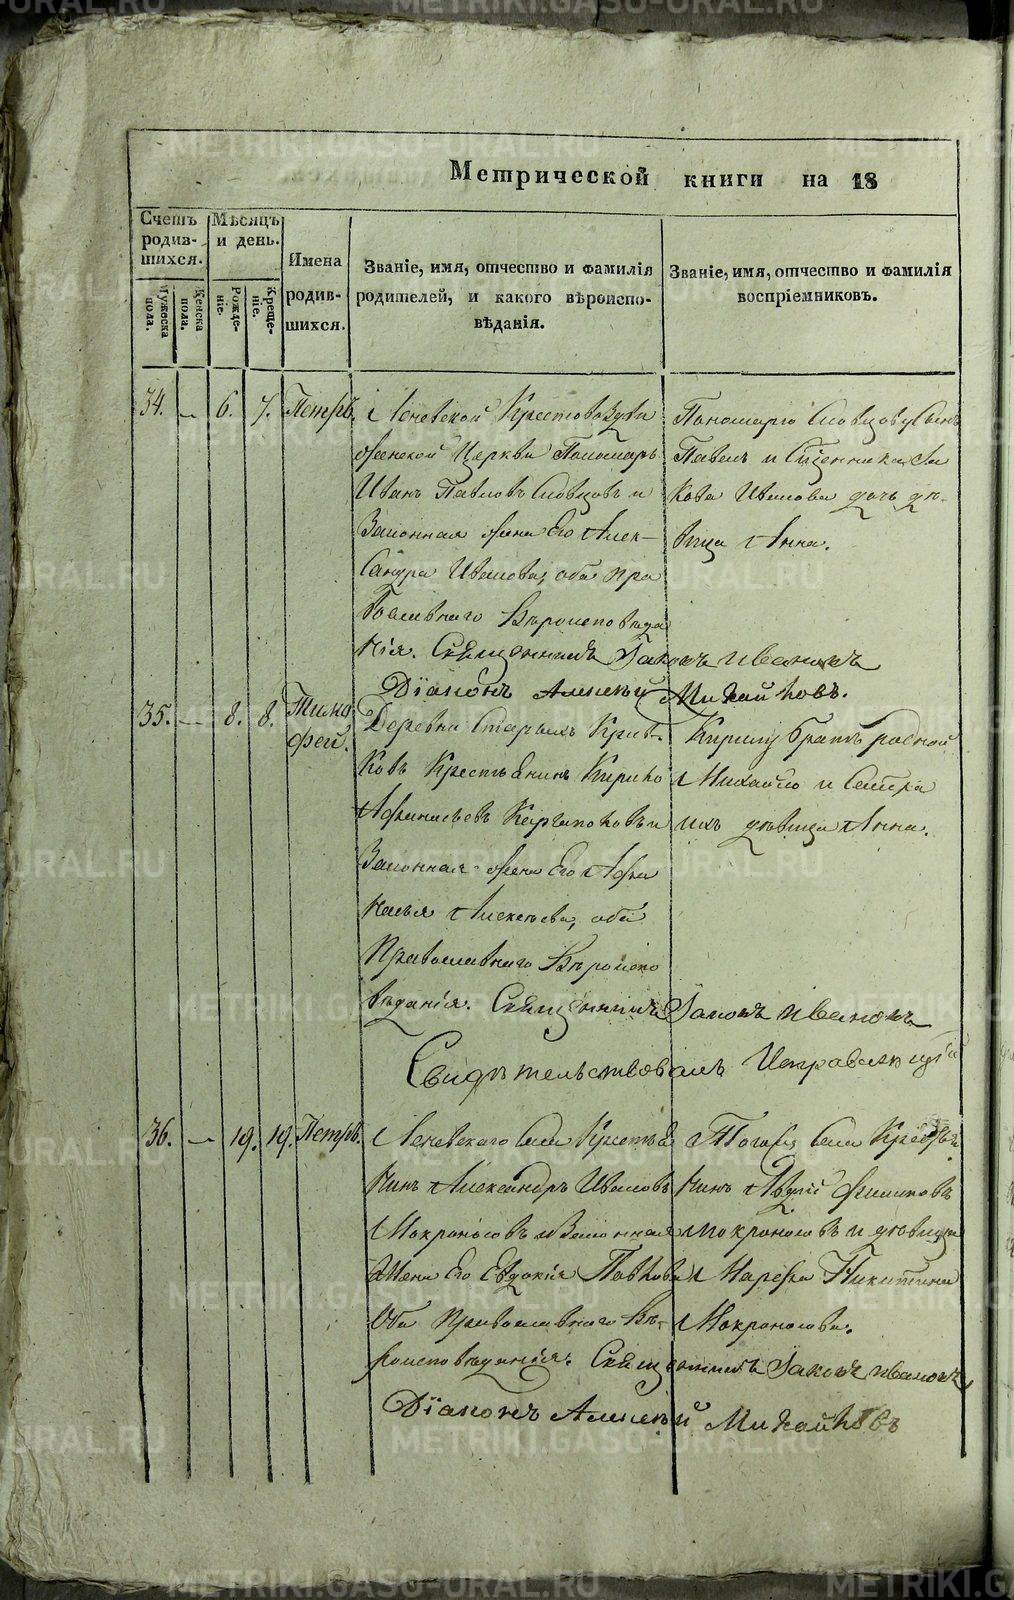 Метрической книги на 18
Счетъ родившихся.
Мужеска пола.
Женска пола.
Мѣсяцъ и день.
Рождение.
Крещение.
Имена родившихся.
Званіе, имя, отчество и фамилія
родителей, и какого вѣроиспо-
вѣданія.
Званіе, имя, отчество и фамилія
воспріемниковъ.
34. — 6. 7. Петръ.
Леневской Крестовоздви
женской Церкви Пономарь
Иванъ Павловъ Словцовъ и
Законная жена Его Алек-
сандра Иванова, оба пра
вославнаго Вѣроисповѣда
нія. Священникъ Іаковъ Ивановъ
Діаконъ Алексѣй Михайловъ.
Пономарю Словцову Сынъ
Павелъ и Священника Іа
кова Иванова дочь дѣ-
вица Анна.
35. — 8. 8. Тимо
фей.
Деревни Старыхъ Крив-
ковъ Крестьянинъ Кирило
Афанасьевъ и
Законная жена Его Афа
насья Алексѣева, оба
Православнаго Вѣроиспо
вѣданія. Священникъ Іаковъ Ивановъ
Кирилу братъ родной
Михайло и Сестра
ихъ дѣвица Анна.
Свидѣтельствовалъ
36. — 19. 19. Петръ.
Леневскаго Села Крестья
нинъ Александръ Ивановъ
Мокроносовъ и Законная
жена Его Евдокія Павлова
Оба Православнаго Вѣ-
роисповѣданія. Священникъ Іаковъ Ивановъ
Діаконъ Алексѣй Михайловъ
Тогожъ Села Крестья
нинъ Филиповъ
Мокроносовъ и дѣвица
Марѳа Никитина
Мокроносова.
METRIKI.GASO-URAL.RU